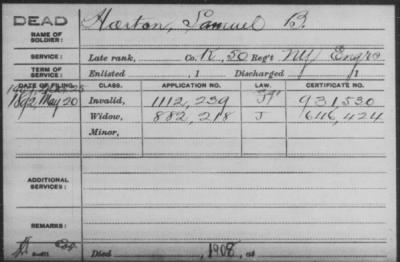 DEAD
NAME OF SOLDIER: Horton, Samuel B.
SERVICE: Late rank, Co. K, 50 Reg't NY Engrs
TERM OF SERVICE: Enlisted , 1 Discharged , 1
DATE OF FILING. CLASS. APPLICATION NO. LAW. CERTIFICATE NO.
Invalid, 1112,239 931,530
1892, May 20 Widow, 882,218 J 646,424
Minor,
ADDITIONAL SERVICES:
REMARKS:
Died , 1908, at